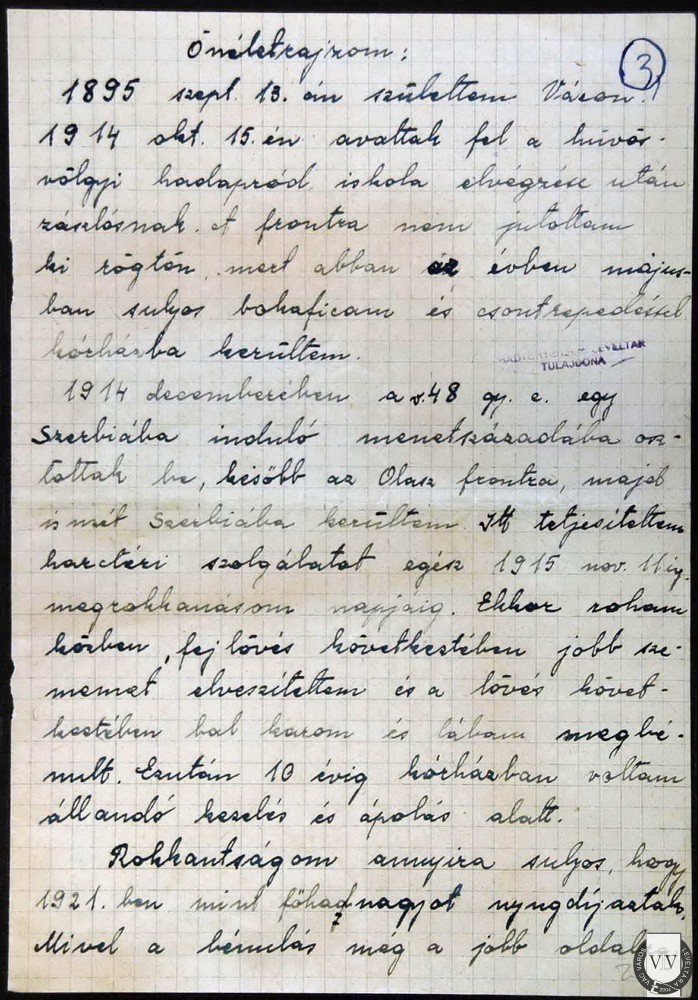 Önéletrajzom:
3
1895 szept. 13.-án születtem Vácon.
1914 okt. 15.-én avattak fel a hűvös-
völgyi hadapród iskola elvégzése után
zászlósnak. A frontra nem jutottam
ki rögtön, mert abban az évben május-
ban sulyos bokaficam és csontrepedéssel
kórházba kerültem.
LEVÉLTÁR
TULAJDONA
1914 decemberében a v.48 gy. e. egy
Szerbiába induló menetszázadába osz-
tottak be, később az Olasz frontra, majd
ismét Szerbiába kerültem. Itt teljesítettem
harctéri szolgálatot egész 1915 nov. 11ig
megrokkanásom napjáig. Ekkor roham
közben, fejlövés következtében jobb sze-
memet elveszítettem és a lövés követ-
keztében bal karom és lábam megbé-
nult. Ezután 10 évig kórházban voltam
állandó kezelés és ápolás alatt.
Rokkantságom annyira sulyos, hogy
1921.ben mint főhadnagyot nyugdíjaztak.
Mivel a bénulás még a jobb
VV